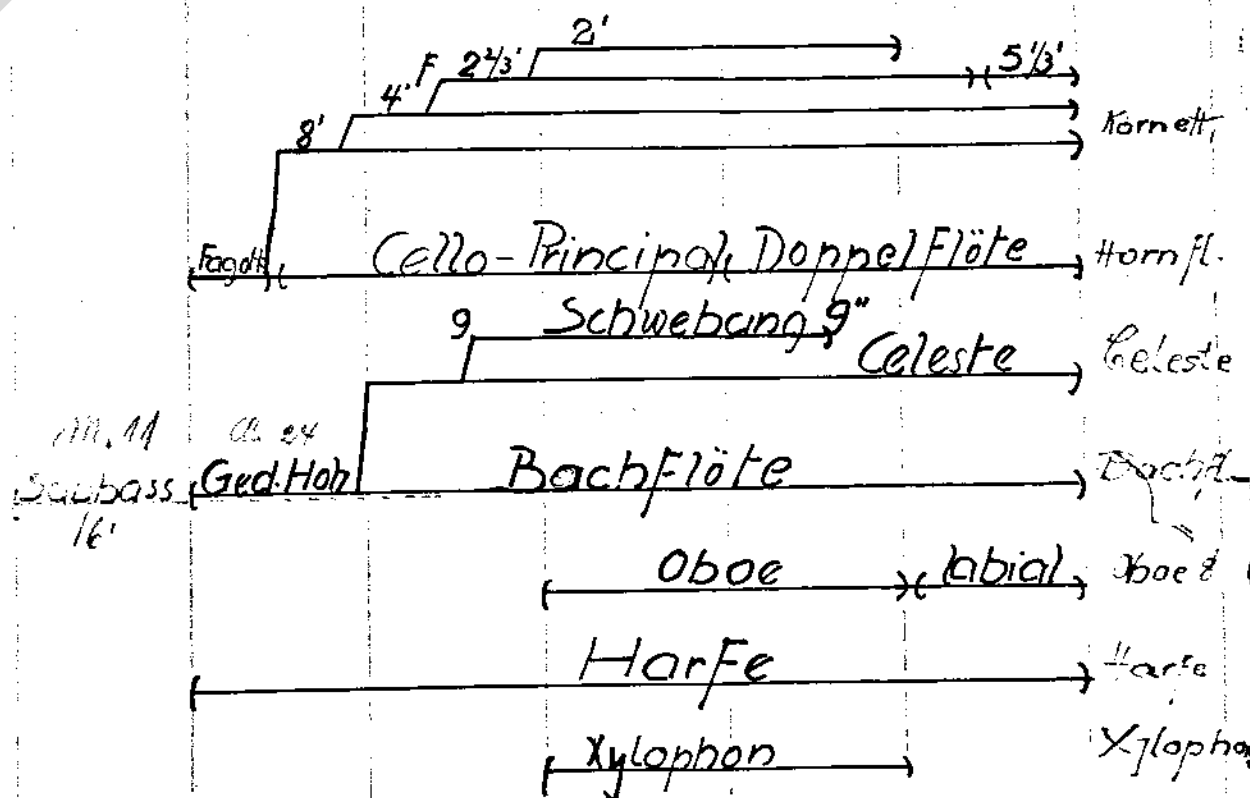 2'
F 2 2/3' 5 1/3'
4'
8' Kornett
Fagott Cello-Principal, Doppelflöte Hornfl.
9 Schwebung 9"
Celeste Celeste
M. 11
Ged. Hoh Bachflöte Bachfl.
16'
Oboe labial Oboe 8
Harfe Harfe
Xylophon Xylophon